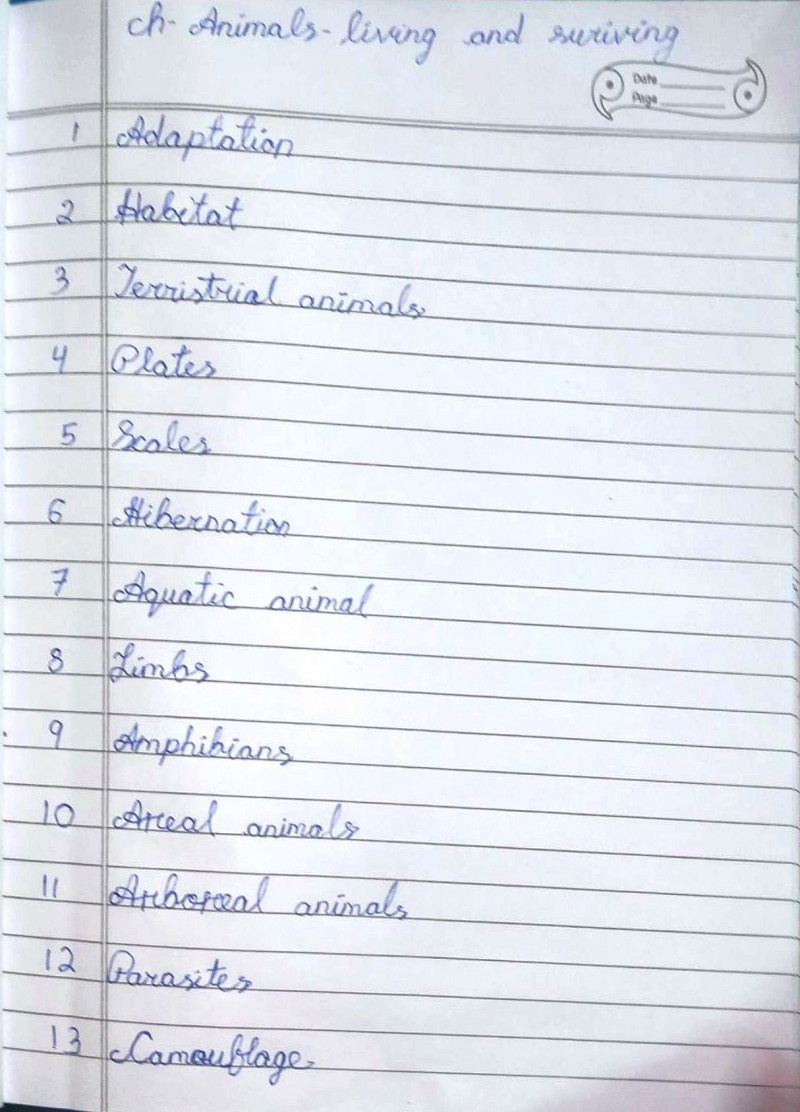 ch- Animals- living and suriving
Date
Page
1 Adaptation
2 Habitat
3 Terristrial animals
4 Plates
5 Scales
6 Hibernation
7 Aquatic animal
8 Limbs
9 Amphibians
10 Areal animals
11 Arboreal animals
12 Parasites
13 Camouflage